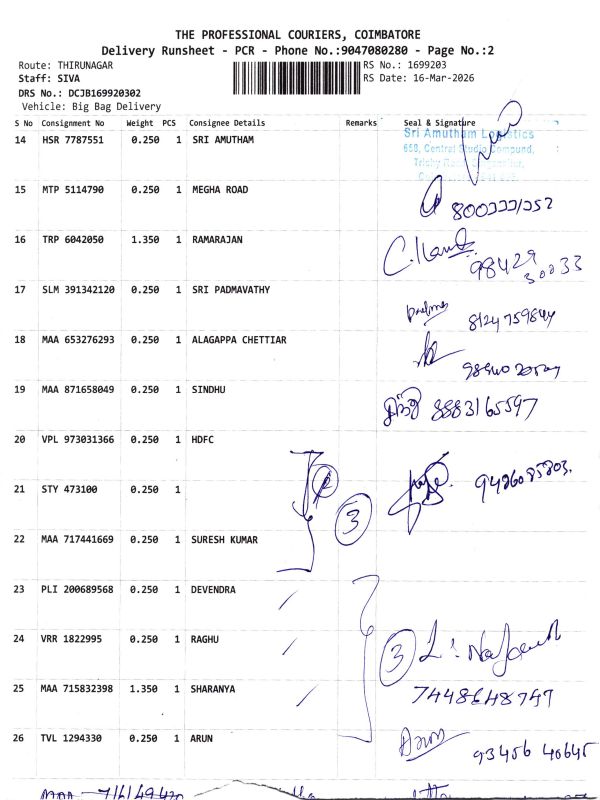 THE PROFESSIONAL COURIERS, COIMBATORE
Delivery Runsheet - PCR - Phone No.:9047080280 - Page No.:2
Route: THIRUNAGAR RS No.: 1699203
Staff: SIVA RS Date: 16-Mar-2026
DRS No.: DCJB169920302
Vehicle: Big Bag Delivery
S No Consignment No Weight PCS Consignee Details Remarks Seal & Signature
14 HSR 7787551 0.250 1 SRI AMUTHAM Sri Amutham Logistics
658, Central Studio Compund,
15 MTP 5114790 0.250 1 MEGHA ROAD
16 TRP 6042050 1.350 1 RAMARAJAN 98429
30033
17 SLM 391342120 0.250 1 SRI PADMAVATHY 8124759844
18 MAA 653276293 0.250 1 ALAGAPPA CHETTIAR
19 MAA 871658049 0.250 1 SINDHU 8883165597
20 VPL 973031366 0.250 1 HDFC
21 STY 473100 0.250 1 3 9486085803.
22 MAA 717441669 0.250 1 SURESH KUMAR
23 PLI 200689568 0.250 1 DEVENDRA
24 VRR 1822995 0.250 1 RAGHU 3
25 MAA 715832398 1.350 1 SHARANYA 7448648747
26 TVL 1294330 0.250 1 ARUN Arun
93456 40645